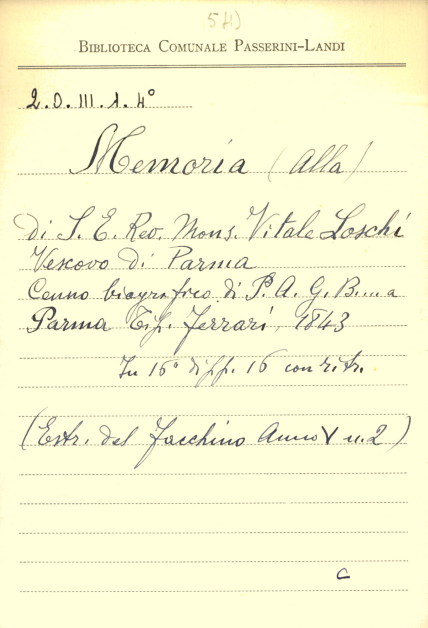 5(1)
BIBLIOTECA COMUNALE PASSERINI-LANDI
2.O.III.1.4°
Memoria (Alla)
di S. E. Rev. Mons. Vitale Loschi
Vescovo di Parma
Cenno biografico di P. A. G. B....a
Parma Tip. Ferrari, 1843
In 16° di pp. 16 con ritr.
(Estr. dal Facchino Anno V n. 2)
C